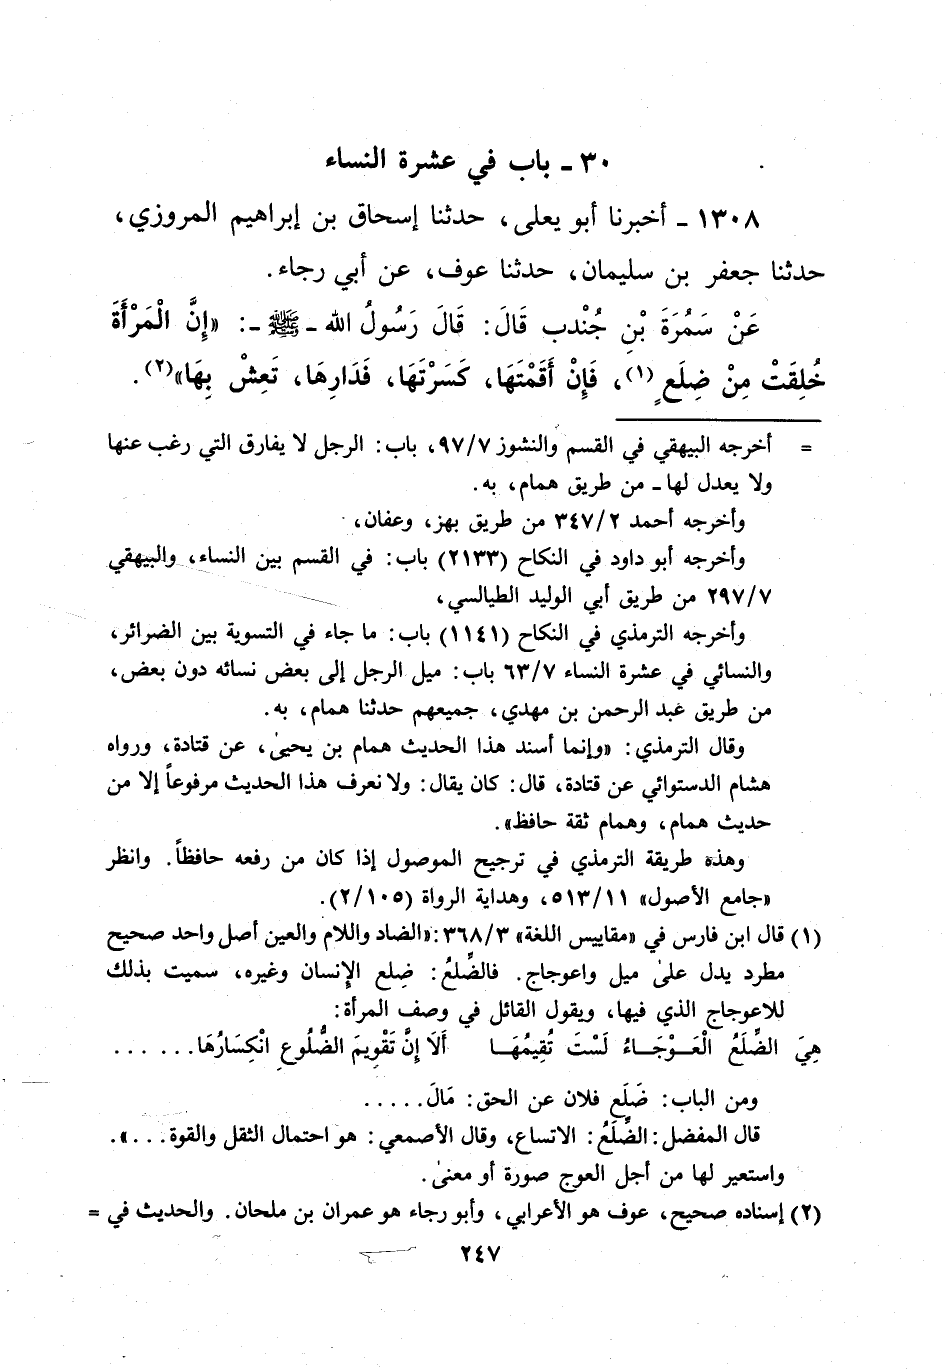 ٣٠ ـ باب في عشرة النساء
١٣٠٨ ـ أخبرنا أبو يعلى، حدثنا إسحاق بن إبراهيم المروزي،
حدثنا جعفر بن سليمان، حدثنا عوف، عن أبي رجاء.
عَنْ سَمُرَةَ بْنِ جُنْدب قَالَ: قَالَ رَسُولُ الله ـ ﷺ ـ: «إِنَّ الْمَرْأَةَ
خُلِقَتْ مِنْ ضِلَعٍ (١)، فَإِنْ أَقَمْتَهَا، كَسَرْتَهَا، فَدَارِهَا، تَعِشْ بِهَا»(٢).
= أخرجه البيهقي في القسم والنشوز ٩٧/٧، باب: الرجل لا يفارق التي رغب عنها
ولا يعدل لها ـ من طريق همام، به.
وأخرجه أحمد ٣٤٧/٢ من طريق بهز، وعفان،
وأخرجه أبو داود في النكاح (٢١٣٣) باب: في القسم بين النساء، والبيهقي
٢٩٧/٧ من طريق أبي الوليد الطيالسي،
وأخرجه الترمذي في النكاح (١١٤١) باب: ما جاء في التسوية بين الضرائر،
والنسائي في عشرة النساء ٦٣/٧ باب: ميل الرجل إلى بعض نسائه دون بعض،
من طريق عبد الرحمن بن مهدي، جميعهم حدثنا همام، به.
وقال الترمذي: «وإنما أسند هذا الحديث همام بن يحيىٰ، عن قتادة، ورواه
هشام الدستوائي عن قتادة، قال: كان يقال: ولا نعرف هذا الحديث مرفوعاً إلا من
حديث همام، وهمام ثقة حافظ».
وهذه طريقة الترمذي في ترجيح الموصول إذا كان من رفعه حافظاً. وانظر
«جامع الأصول» ٥١٣/١١، وهداية الرواة (٢/١٠٥).
(١) قال ابن فارس في «مقاييس اللغة» ٣٦٨/٣:«الضاد واللام والعين أصل واحد صحيح
مطرد يدل علىٰ ميل واعوجاج. فالضِّلَعُ: ضِلع الإِنسان وغيره، سميت بذلك
للاعوجاج الذي فيها، ويقول القائل في وصف المرأة:
هِيَ الضِّلَعُ الْعَوْجَاءُ لَسْتَ تُقِيمُهَا أَلَا إِنَّ تَقْوِيمَ الضُّلُوعِ انْكِسَارُهَا......
ومن الباب: ضَلَع فلان عن الحق: مَالَ.....
قال المفضل: الضِّلَعُ: الاتساع، وقال الأصمعي: هو احتمال الثقل والقوة...».
واستعير لها من أجل العوج صورة أو معنىٰ.
(٢) إسناده صحيح، عوف هو الأعرابي، وأبو رجاء هو عمران بن ملحان. والحديث في =
٢٤٧